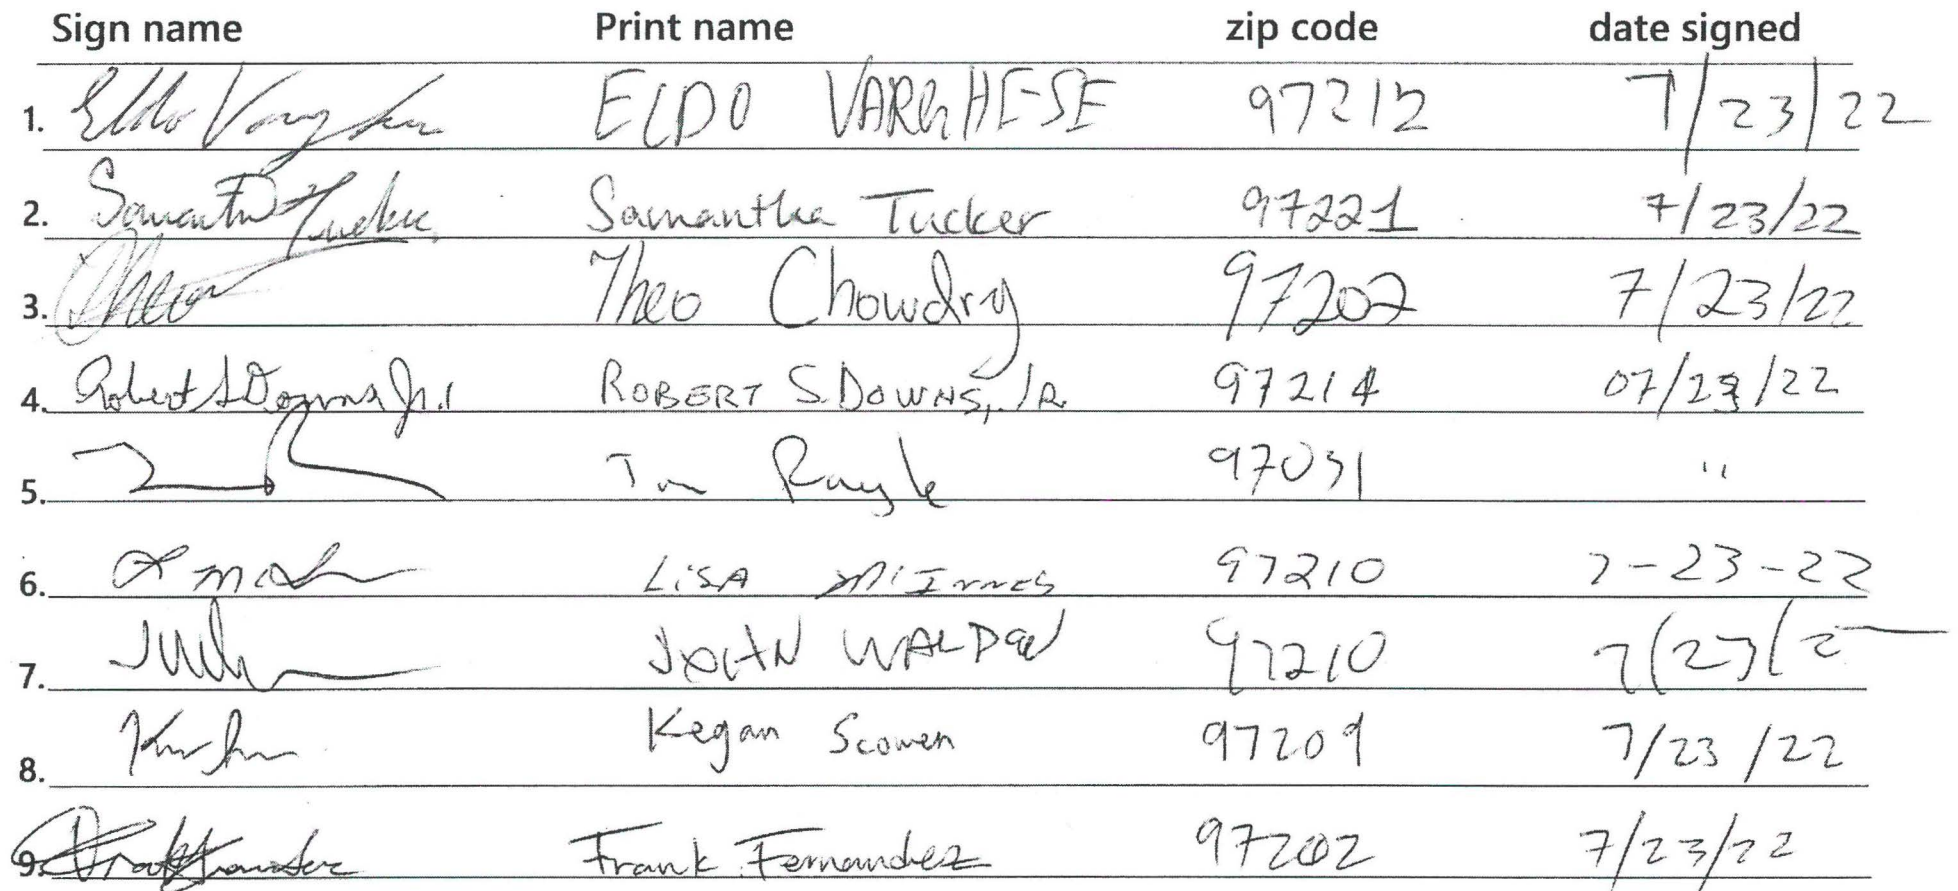 Sign name Print name zip code date signed
1. Eldo Varghese ELDO VARGHESE 97212 7/23/22
2. Samantha Tucker Samantha Tucker 97221 7/23/22
3. Theo Theo Chowdry 97202 7/23/22
4. Robert S Downs Jr. ROBERT S. DOWNS, JR. 97214 07/23/22
5. 97031 "
6. LISA McInnes 97210 7-23-22
7. JOHN WALDEN 97210 7/23/2
8. Kegan Scowen 97209 7/23/22
9. Frank Fernandez 97202 7/23/22